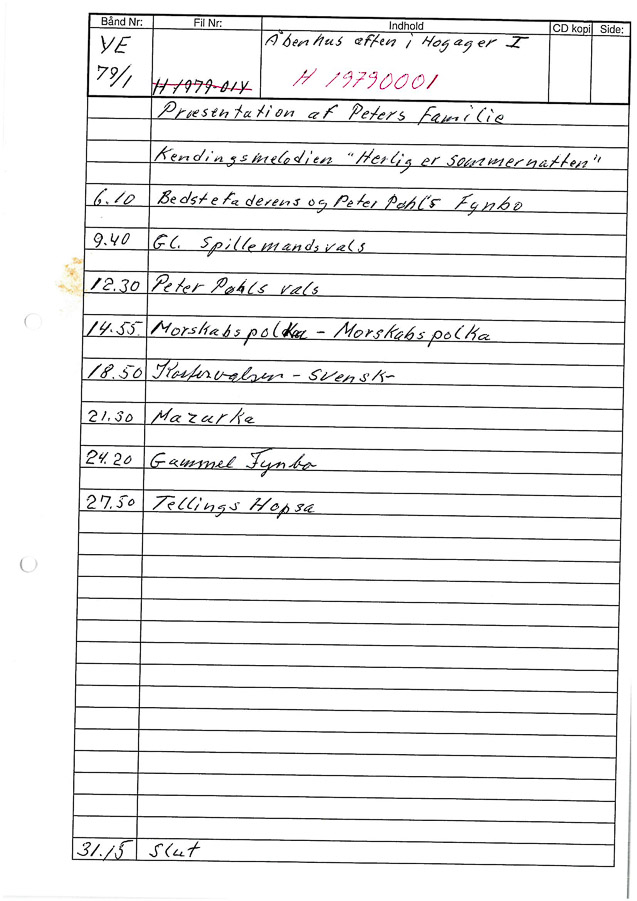 Bånd Nr: Fil Nr: Indhold CD kopi Side:
VE Åbenhus aften i Hogager I
79/1 H 1979-01V H 19790001
Præsentation af Peters Familie
Kendingsmelodien "Herlig er Sommernatten"
6.10 Bedstefaderens og Peter Pøhl's Fynbo
9.40 Gl. Spillemandsvals
12.30 Peter Pøhls vals
14.55 Morskabspolka - Morskabspolka
18.50 - Svensk-
21.30 Mazurka
24.20 Gammel Fynbo
27.50 Tellings Hopsa
31.15 Slut